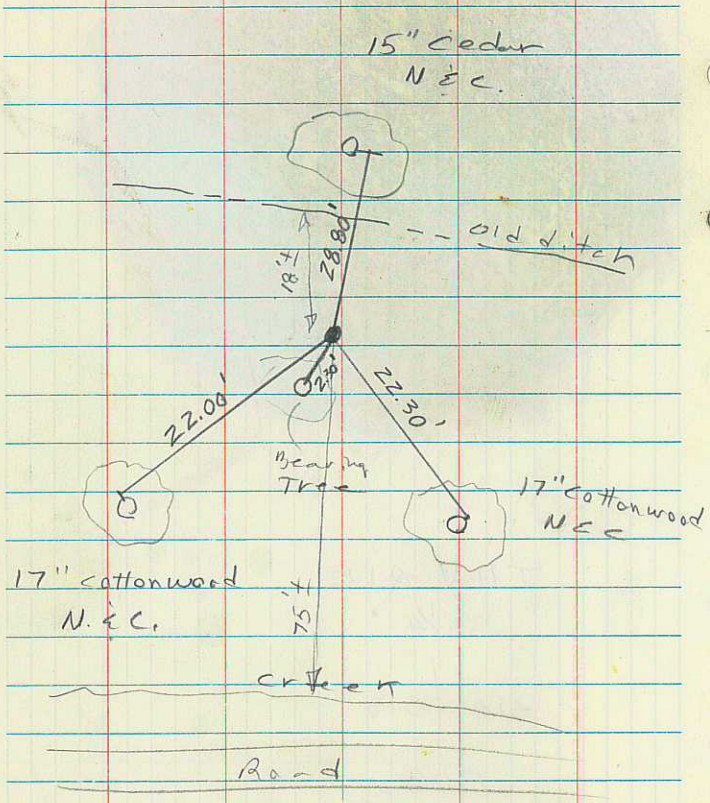 15" Cedar
N & C.
old ditch
18'±
28.80'
22.00'
2.70'
22.30'
Bearing
Tree
17" Cottonwood
N & C
17" Cottonwood
N. & C.
75'±
Creek
Road